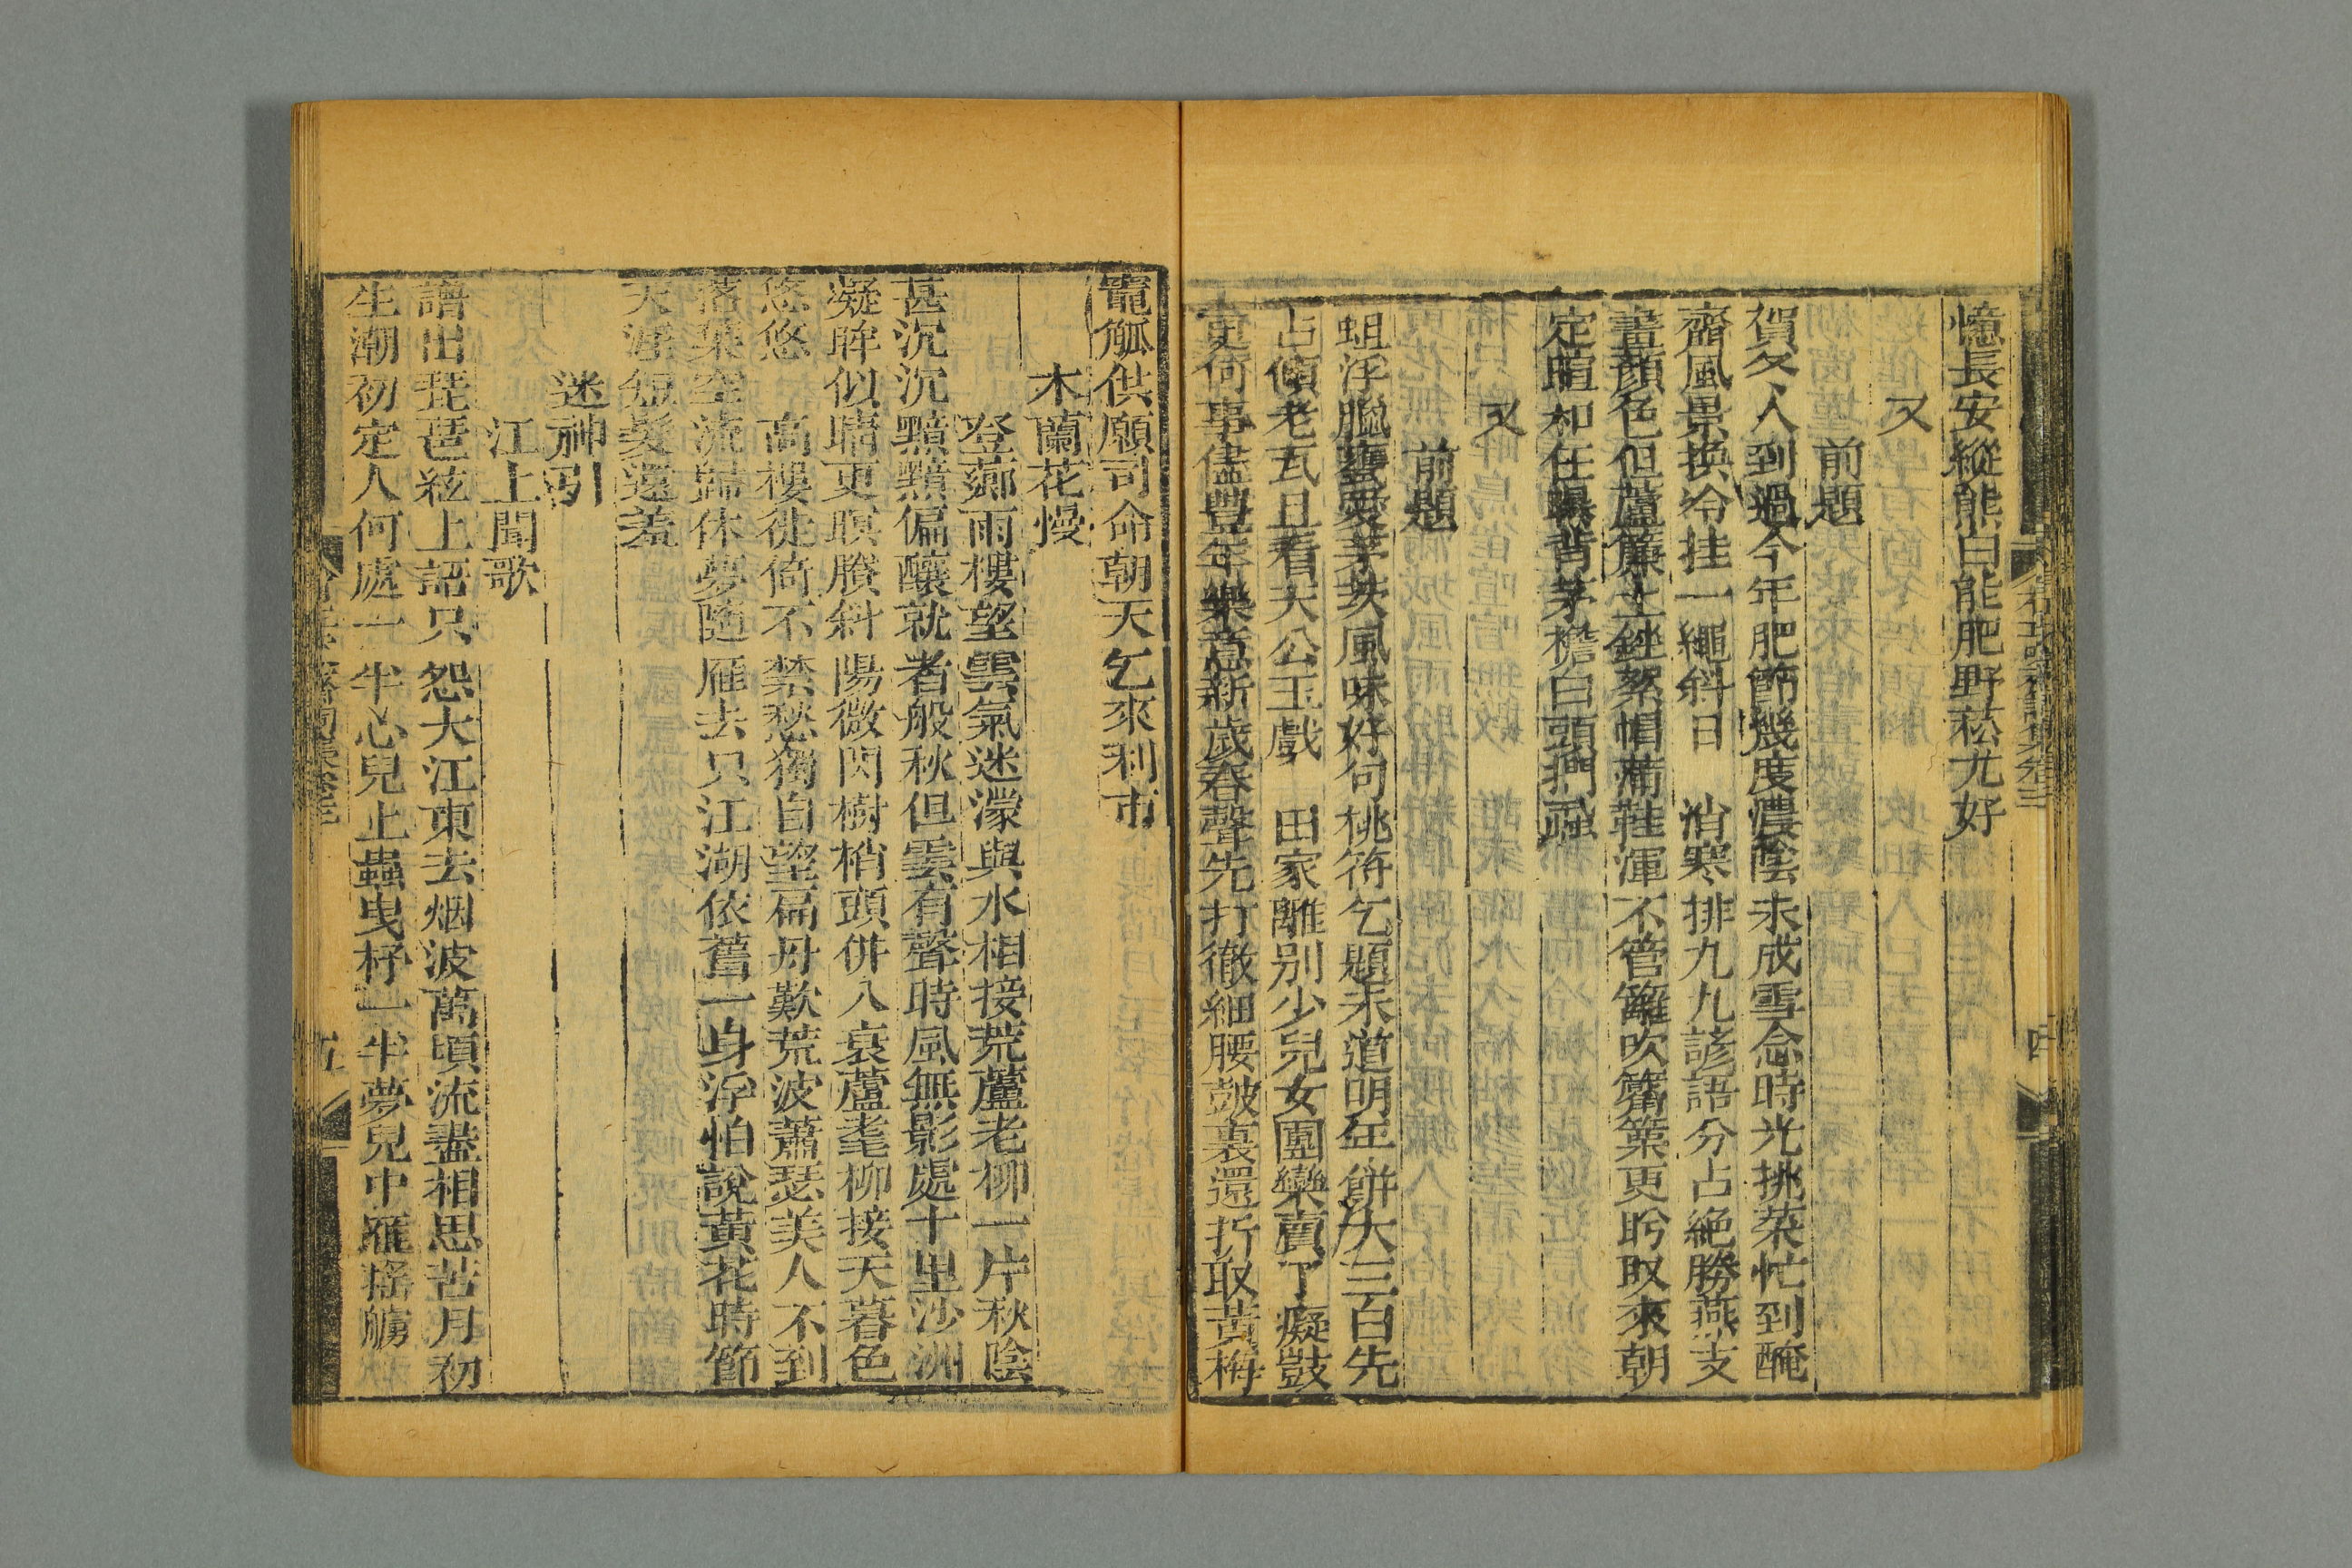 憶長安縱熊白能肥野菘尤好
又
前題
賀冬人到過今年肥節幾度濃陰未成雪念時光挑菜忙到醃
齏風景換冷挂一繩斜日　消寒排九九諺語分占絶勝燕支
畫顔色但蘆簾土銼絮帽蒲鞋渾不管籬吹簫篥更盻取來朝
定暄和任曝背茅檐白頭捫蝨
又
前題
蛆浮臘甕愛茅茨風味好句桃符乞題未道明年餅大三百先
占傾老瓦且看天公玉戲　田家離别少兒女團欒賣了癡獃
更何事儘豐年樂意新歲春聲先打徹細腰皷裏還折取黄梅
竈觚供願司命朝天乞來利市
木蘭花慢
登薌雨樓望
雲氣迷濛與水相接荒蘆老柳一片秋陰
甚沉沉黯黯偏釀就者般秋但雲有聲時風無影處十里沙洲
凝眸似晴更暝賸斜陽微閃樹梢頭併入衰蘆耄柳接天暮色
悠悠　高樓徙倚不禁愁獨自望扁舟歎荒波蕭瑟美人不到
落葉空流歸休夢隨雁去只江湖依舊一身浮怕說黄花時節
天涯短髮還羞
迷神引
江上聞歌
譜出琵琶絃上語只怨大江東去烟波萬頃流盡相思苦月初
生潮初定人何處一半心兒上蟲曳杼一半夢兒中雁搖艣
五